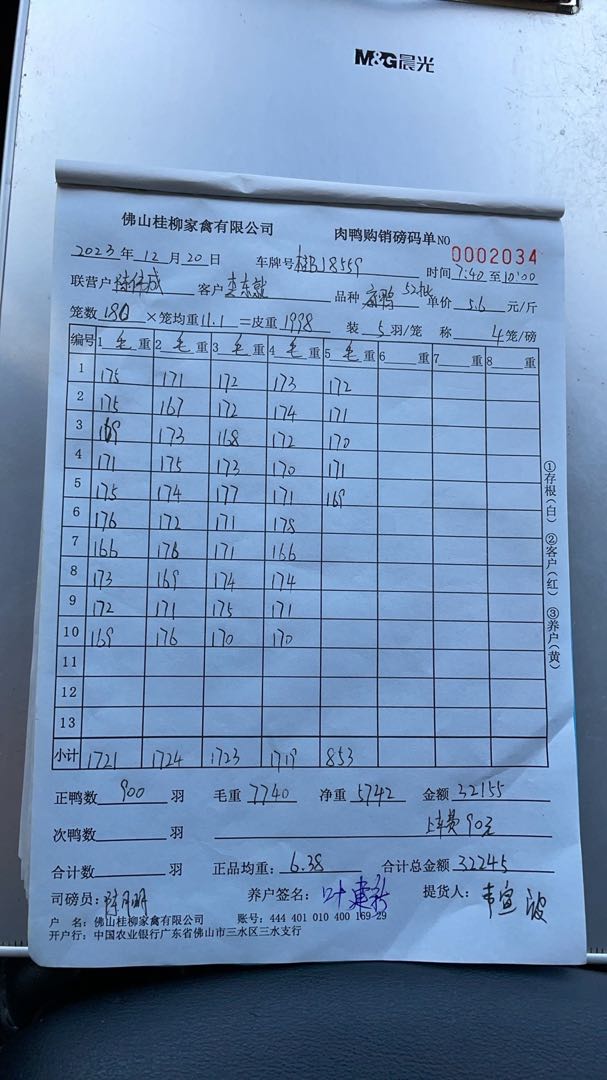 M&G晨光
佛山桂柳家禽有限公司 肉鸭购销磅码单NO 0002034
2023年12月20日 车牌号 桂B18559 时间 7:40至10:00
联营户 客户 品种 52批 单价 5.6 元/斤
笼数 180 ×笼均重 11.1 =皮重 1998 装 5 羽/笼 称 4 笼/磅
编号 1 毛 重 2 毛 重 3 毛 重 4 毛 重 5 毛 重 6 重 7 重 8 重
1 175 171 172 173 172
2 175 167 172 174 171
3 169 173 168 172 170
4 171 175 173 170 171
5 175 174 177 171 169
6 176 172 171 178
7 166 176 171 166
8 173 169 174 174
9 172 171 175 171
10 169 176 170 170
11
12
13
小计 1721 1724 1723 1719 853
正鸭数 900 羽 毛重 7740 净重 5742 金额 32155
次鸭数 羽 上车费90元
合计数 羽 正品均重: 6.38 合计总金额 32245
司磅员: 养户签名: 叶建新 提货人: 韦宣波
户 名: 佛山桂柳家禽有限公司 账号: 444 401 010 400 169 29
开户行: 中国农业银行广东省佛山市三水区三水支行
①存根(白) ②客户(红) ③养户(黄)